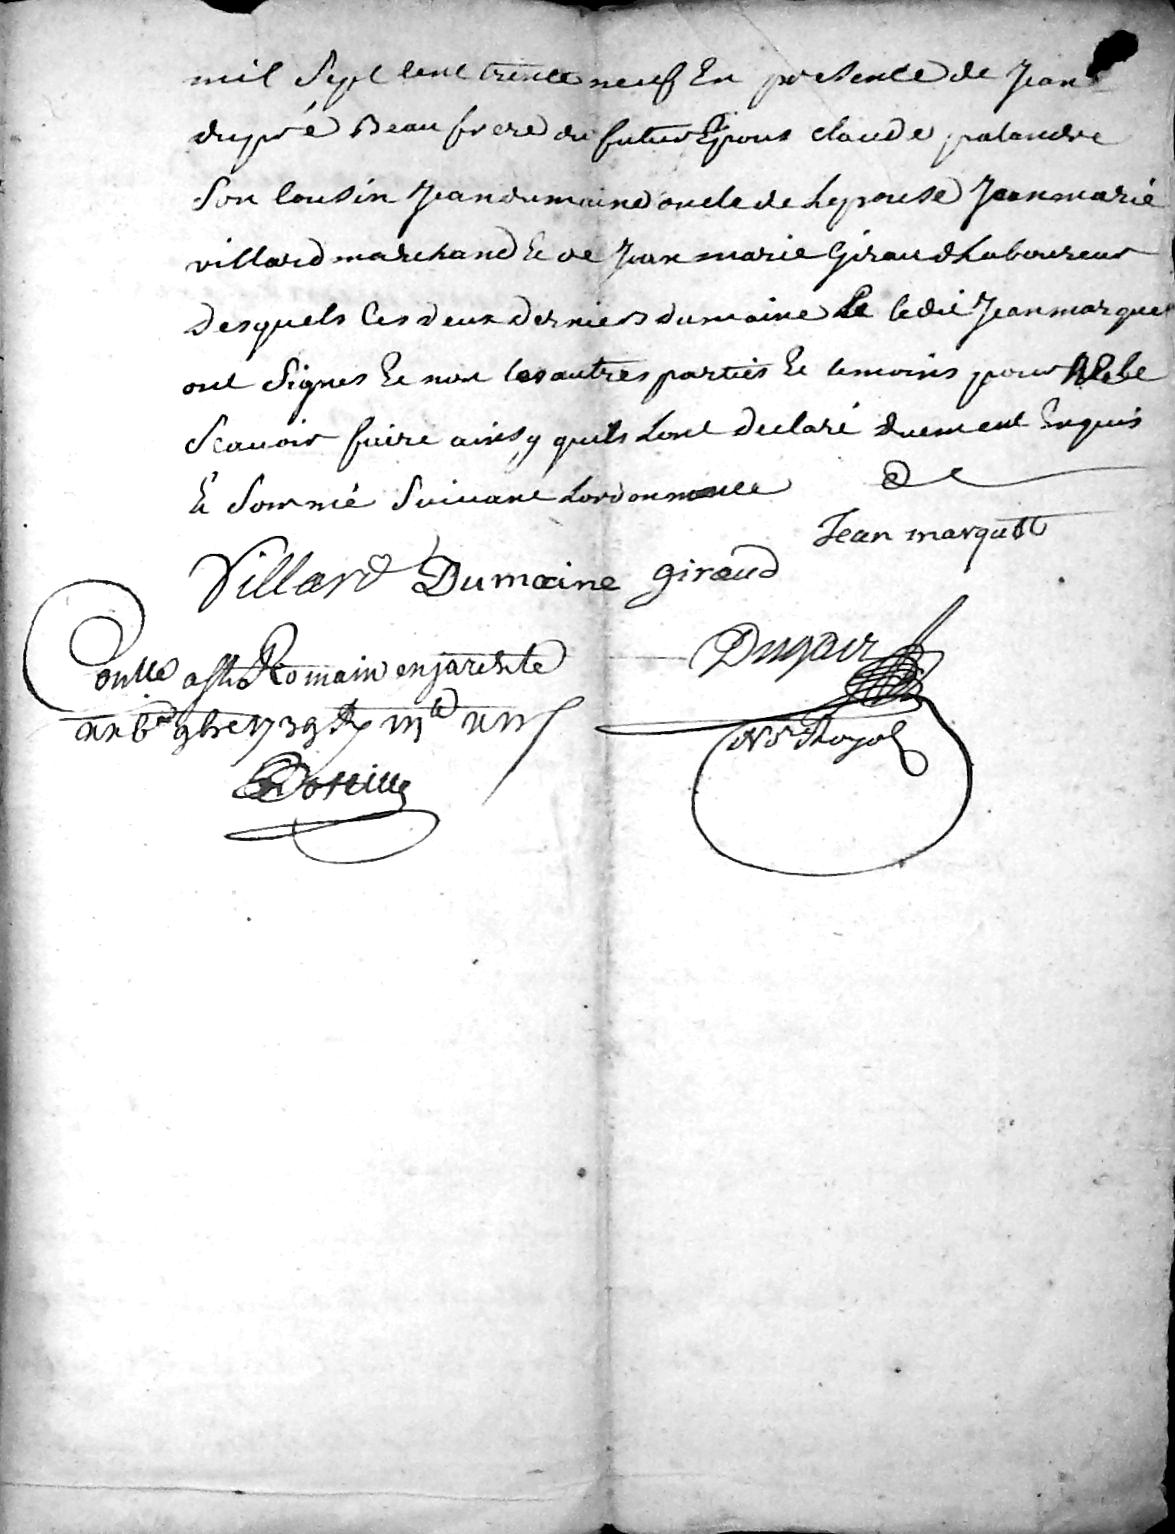 mil Sept Cent trente neuf En presence de Jean
dupré Beau frere du futur Epoux claude palandre
Son Cousin Jean dumaine oncle de Lepouse Jean marie
villard marchand Et de Jean marie Giraud Laboureur
desquels Les deux derniers dumaine Le ledit Jean marque
ont Signes Et non les autres parties Et temoins pour ne le
Scavoir faire ainsy quils Lont declaré duement Enquis
Et Sommé Suivant Lordonnance
Jean marquet
Villard Dumaine giraud
Conllé a St Romain en jarehte
9bre 1739
Dugair
Nre Royal